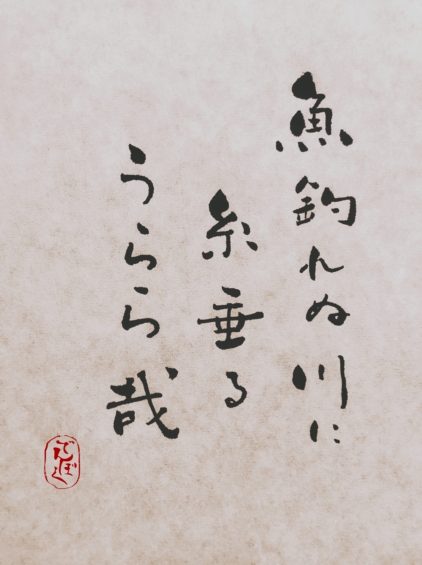 魚釣れぬ川に
糸垂る
うらら哉
でんぼく